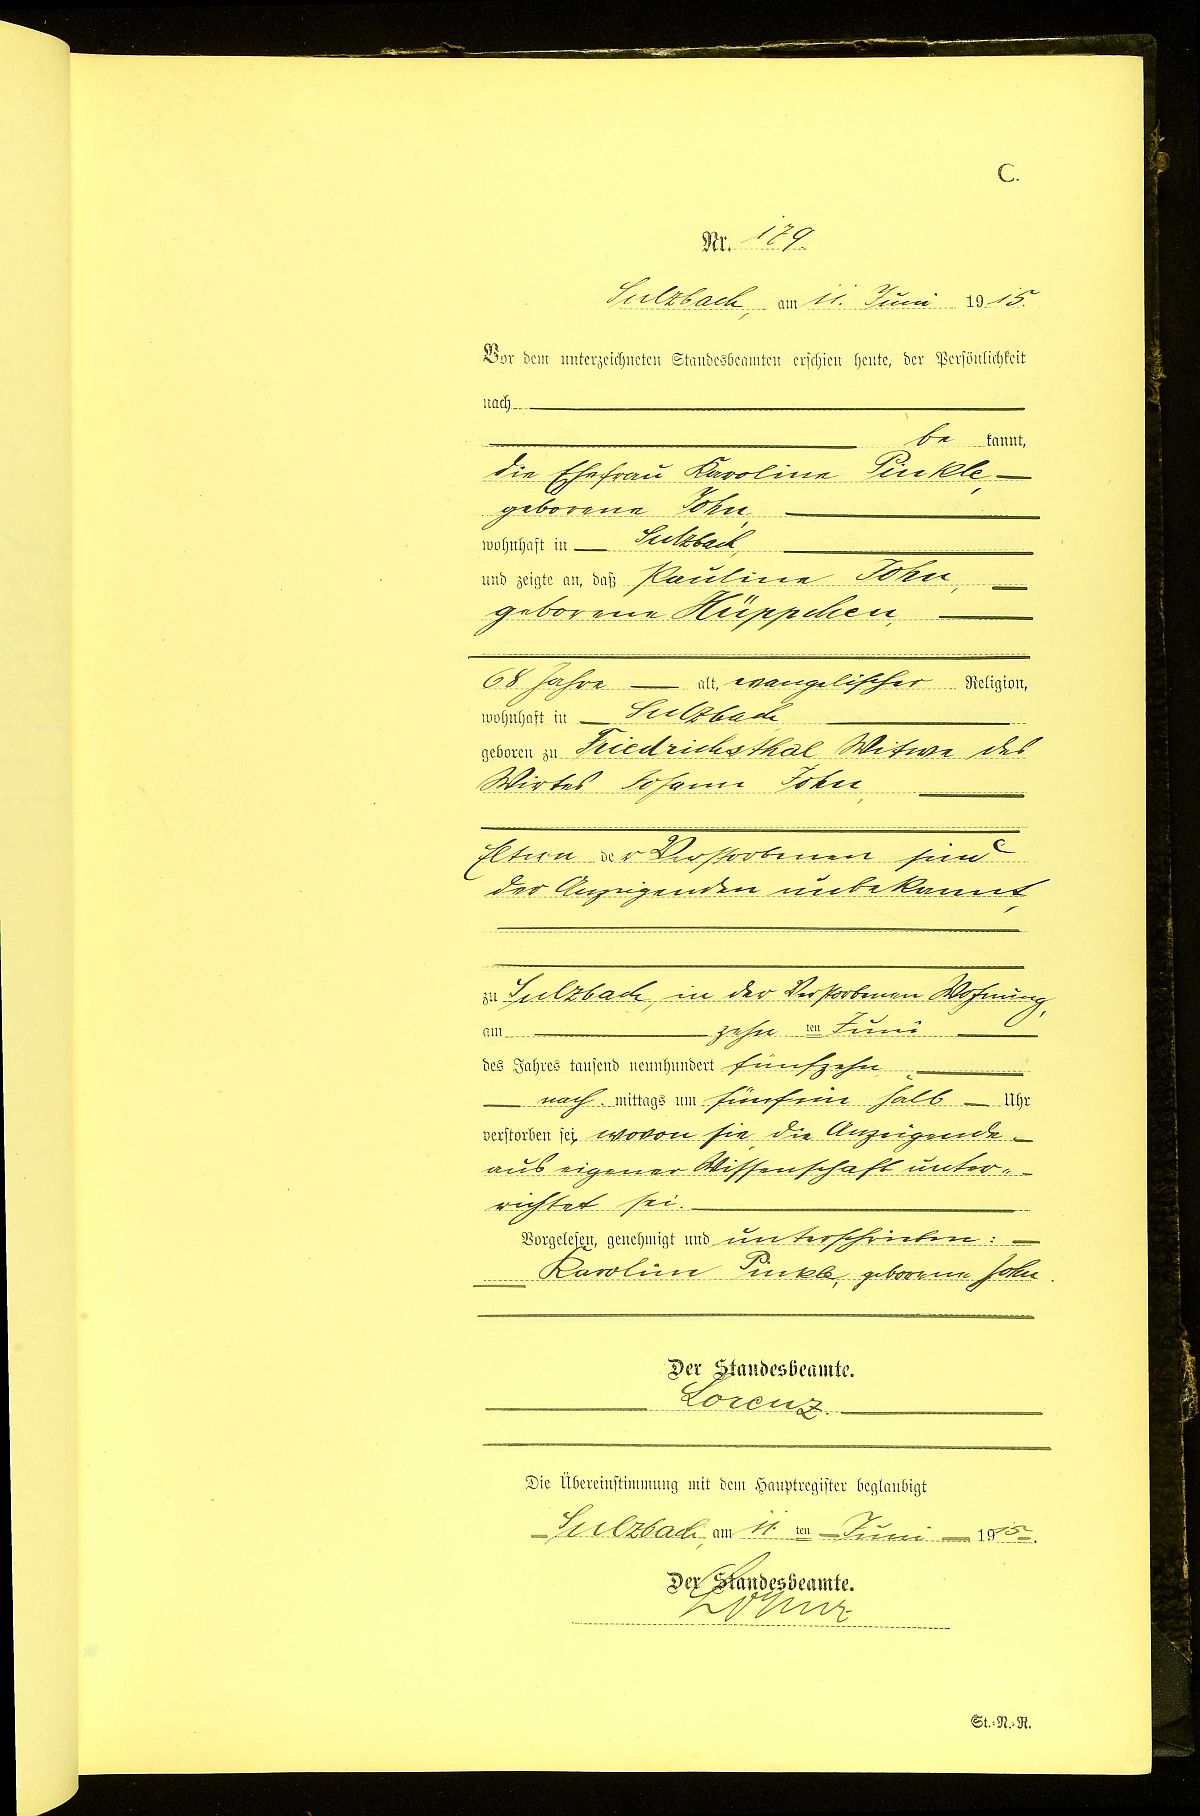 C.
Nr. 179.
Sulzbach, am 11. Juni 1915.
Vor dem unterzeichneten Standesbeamten erschien heute, der Persönlichkeit
nach
be kannt,
die Ehefrau Karoline Pinkle,
geborene John,
wohnhaft in Sulzbach,
und zeigte an, daß Pauline John,
geborene Hüppchen,
68 Jahre alt, evangelischer Religion,
wohnhaft in Sulzbach
geboren zu Friedrichsthal Witwe des
Wirtes Johann John,
Eltern der Verstorbenen sind
der Anzeigenden unbekannt,
zu Sulzbach, in der Verstorbenen Wohnung,
am zehn ten Juni
des Jahres tausend neunhundert fünfzehn
nach mittags um fünfein halb Uhr
verstorben sei, wovon sie, die Anzeigende
aus eigener Wissenschaft unter-
richtet sei.
Vorgelesen, genehmigt und unterschrieben:
Karolin Pinkle, geborene John.
Der Standesbeamte.
Lorenz.
Die Übereinstimmung mit dem Hauptregister beglaubigt
Sulzbach, am 11. ten Juni 1915.
Der Standesbeamte.
Lorenz
St.-N.-R.